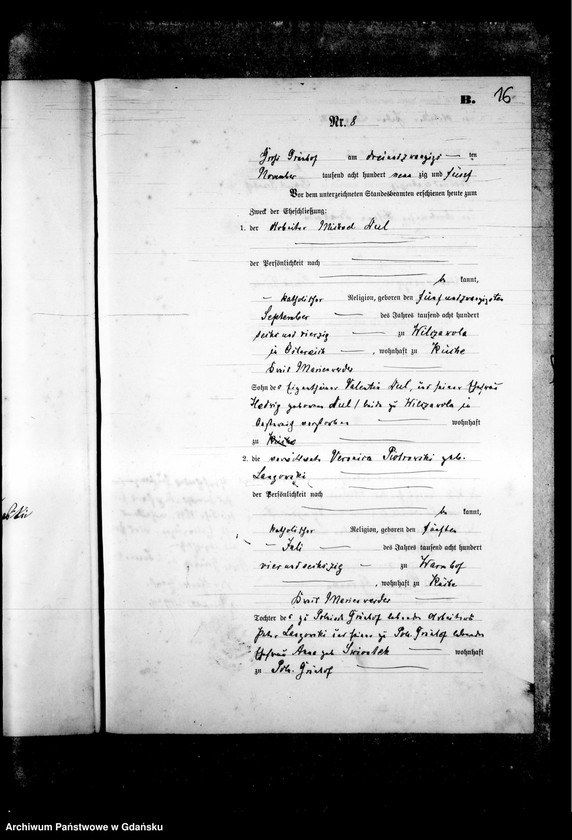 B. 16
Nr. 8
Groß Grünhof am dreiundzwanzigs ten
November tausend acht hundert neun zig und fünf
Vor dem unterzeichneten Standesbeamten erschienen heute zum
Zweck der Eheschließung:
1. der Arbeiter Michael
der Persönlichkeit nach
be kannt,
katholischer Religion, geboren den fünf und zwanzigsten
September des Jahres tausend acht hundert
sechs und vierzig zu Wilczavola
in Österreich, wohnhaft zu
Kreis Marienwerder
Sohn des Eigenthümer Valentin und seiner Ehefrau
Hedwig geborene beide zu Wilczavola in
verstorben wohnhaft
zu
2. die verwittwete Veronica Piotrowski geb.
Langowski
der Persönlichkeit nach
be kannt,
katholischer Religion, geboren den fünften
Juli des Jahres tausend acht hundert
vier und sechszig zu Warmhof
, wohnhaft zu
Kreis Marienwerder
Tochter des zu Polnisch Grünhof lebenden Arbeiters
Langowski und seiner zu Poln. Grünhof lebenden
Ehefrau Anna geb. wohnhaft
zu Poln. Grünhof
Archiwum Państwowe w Gdańsku